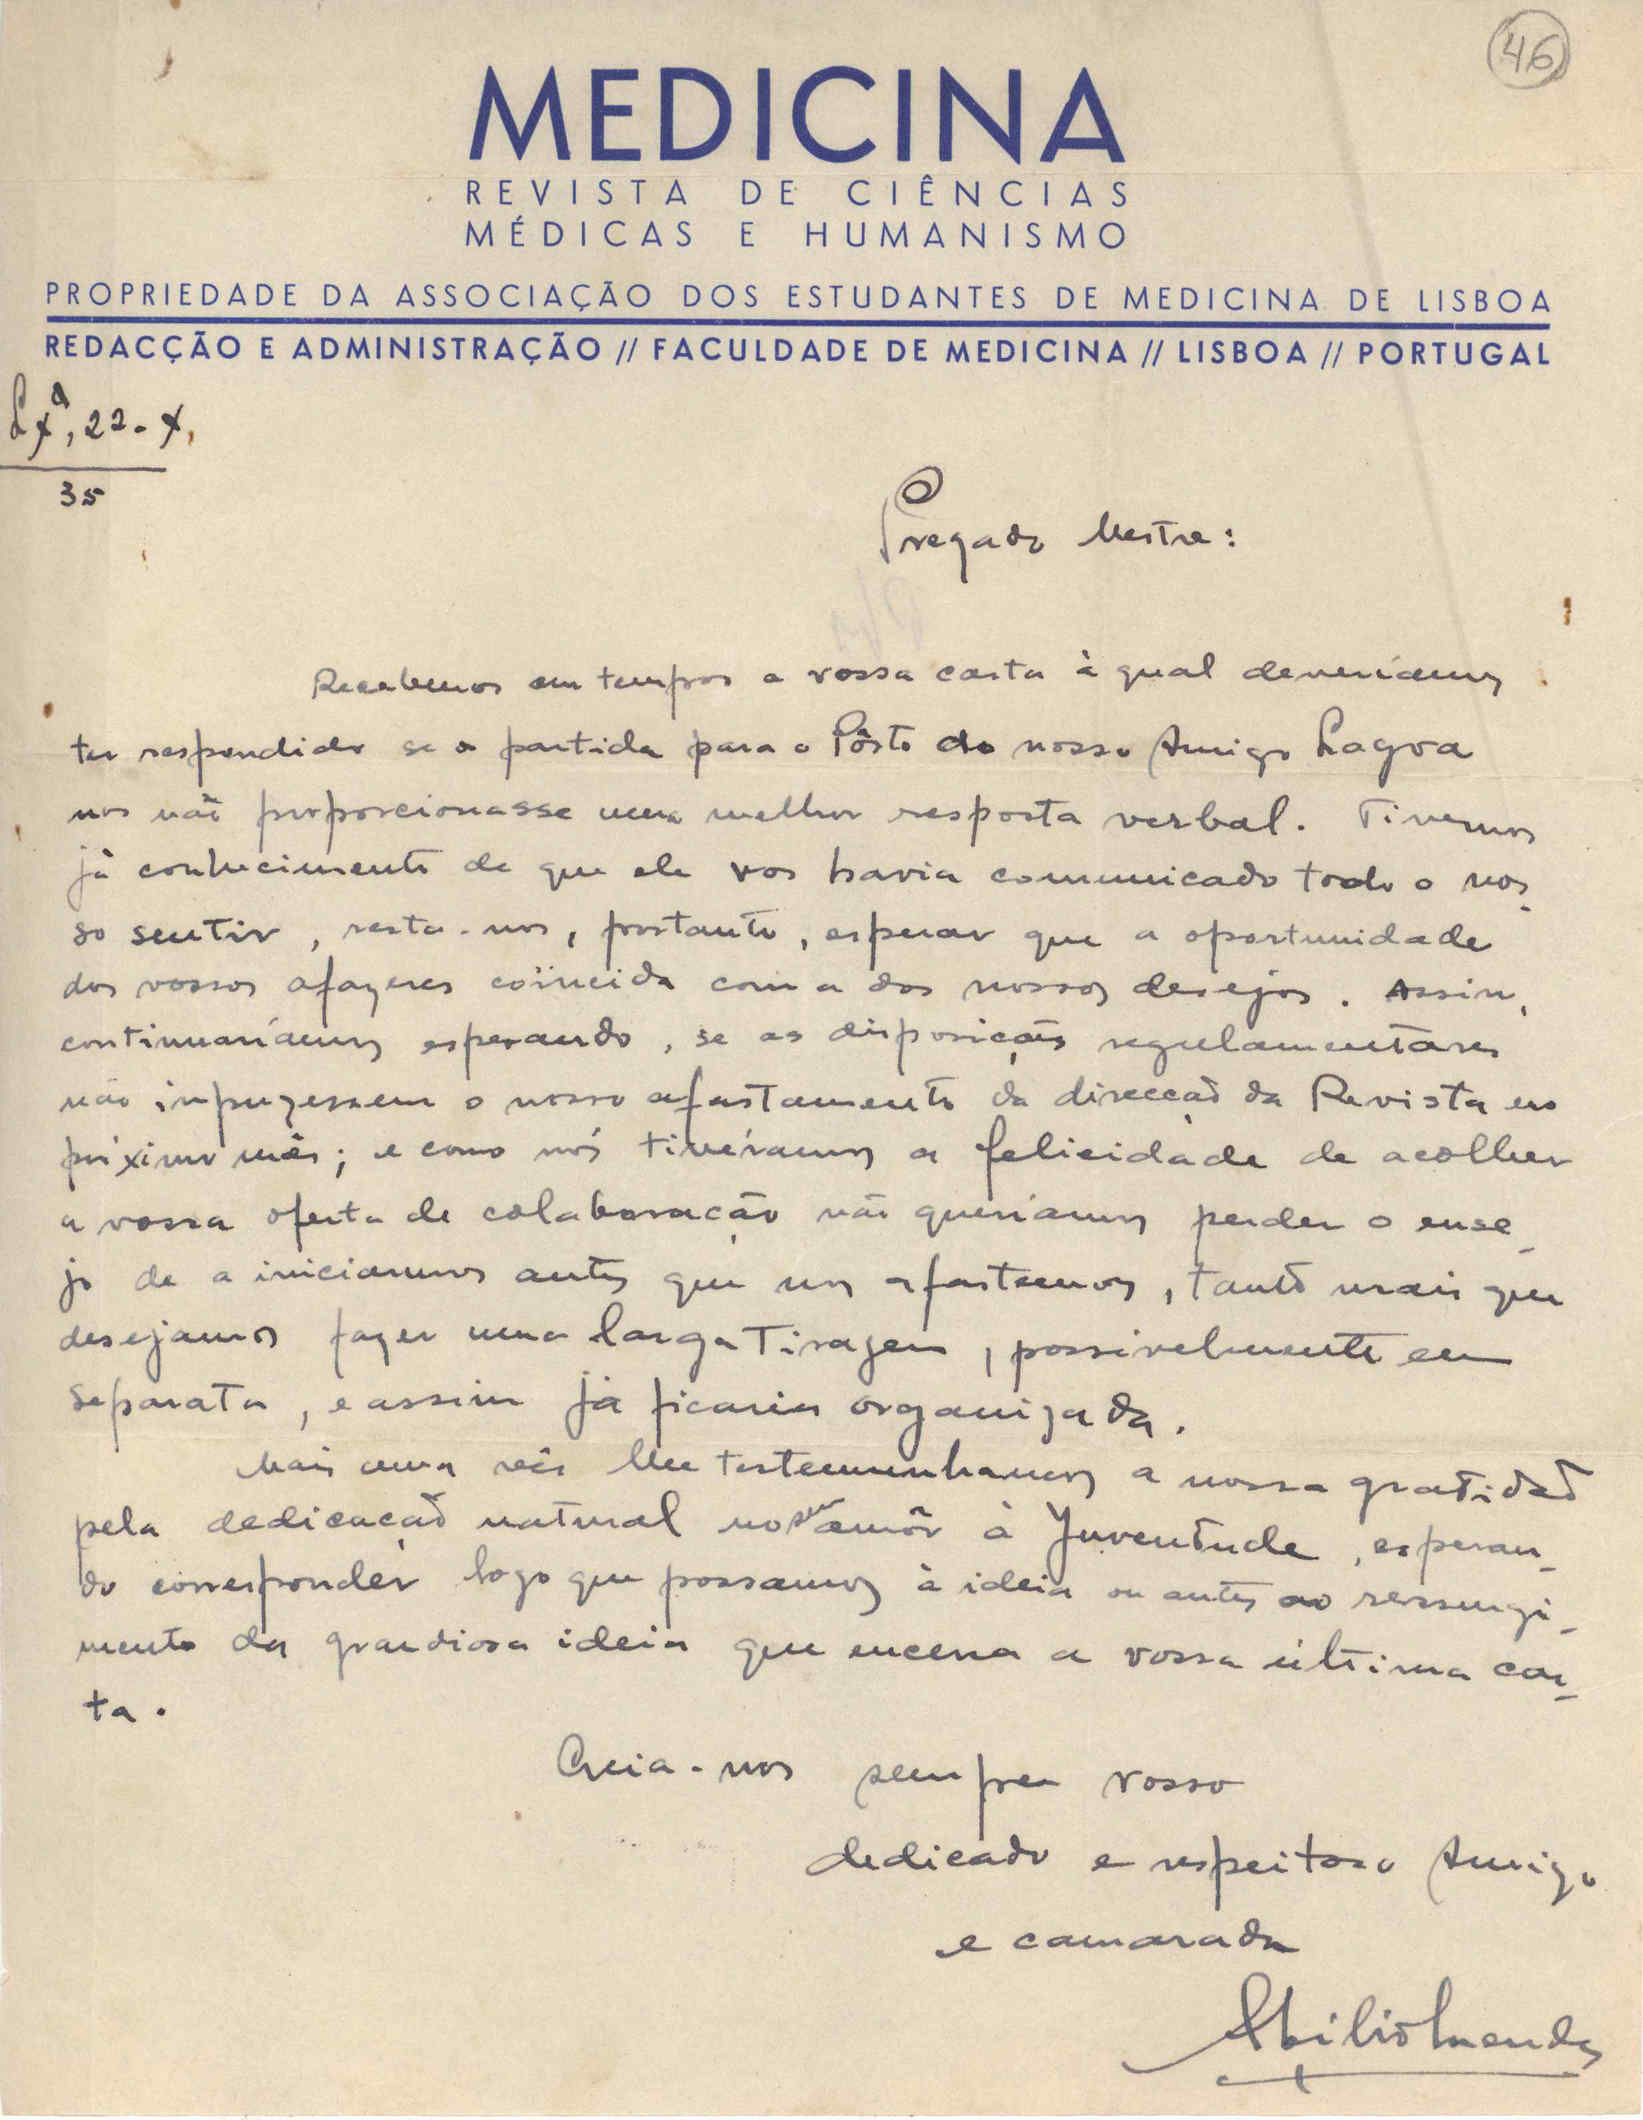 46
MEDICINA
REVISTA DE CIÊNCIAS
MÉDICAS E HUMANISMO
PROPRIEDADE DA ASSOCIAÇÃO DOS ESTUDANTES DE MEDICINA DE LISBOA
REDACÇÃO E ADMINISTRAÇÃO // FACULDADE DE MEDICINA // LISBOA // PORTUGAL
Lxª, 22-X,
35
Presado Mestre:
Recebemos em tempos a vossa carta à qual deveriamos
ter respondido se a partida para o Pôrto do nosso Amigo Lagoa
nos não proporcionasse uma melhor resposta verbal. Tivemos
já conhecimento de que ele vos havia comunicado todo o nos-
so sentir, resta-nos, portanto, esperar que a oportunidade
dos vossos afazeres coïncida com a dos nossos desejos. Assim,
continuariamos esperando, se as disposições regulamentares
não impuzessem o nosso afastamento da direcção da Revista no
próximo mês; e como nós tivéramos a felicidade de acolher
a vossa oferta de colaboração não queriamos perder o ense-
jo de a iniciarmos antes que nos afastemos, tanto mais que
desejamos fazer uma larga tiragem, possivelmente em
separata, e assim já ficaria organizada.
Mais uma vês lhe testemunhamos a nossa gratidão
pela dedicação natural no seu amôr à Juventude, esperan-
do corresponder logo que possamos à ideia ou antes ao ressurgi-
mento da grandiosa ideia que encerra a vossa última car-
ta.
Creia-nos sempre vosso
dedicado e respeitoso Amigo
e camarada
Abilio Mendes